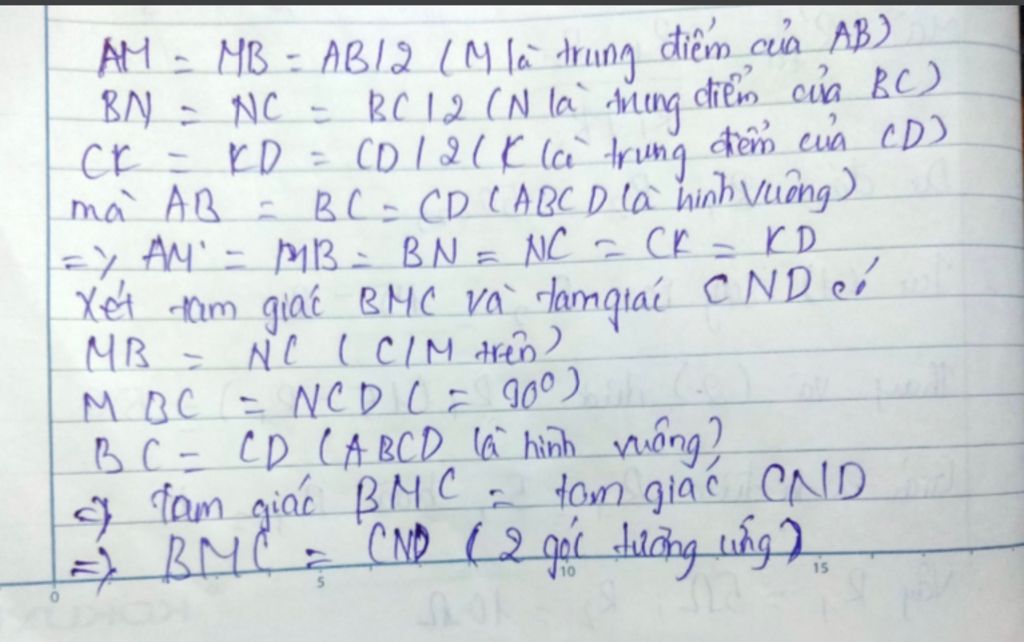 AM = MB = AB/2 (M là trung điểm của AB)
BN = NC = BC/2 (N là trung điểm của BC)
CK = KD = CD/2 (K là trung điểm của CD)
mà AB = BC = CD (ABCD là hình vuông)
=> AM = MB = BN = NC = CK = KD
Xét tam giác BMC và tam giác CND có
MB = NC (C/M trên)
MBC = NCD (= 90°)
BC = CD (ABCD là hình vuông)
=> tam giác BMC = tam giác CND
=> BMC = CND (2 góc tương ứng)
0 5 10 15